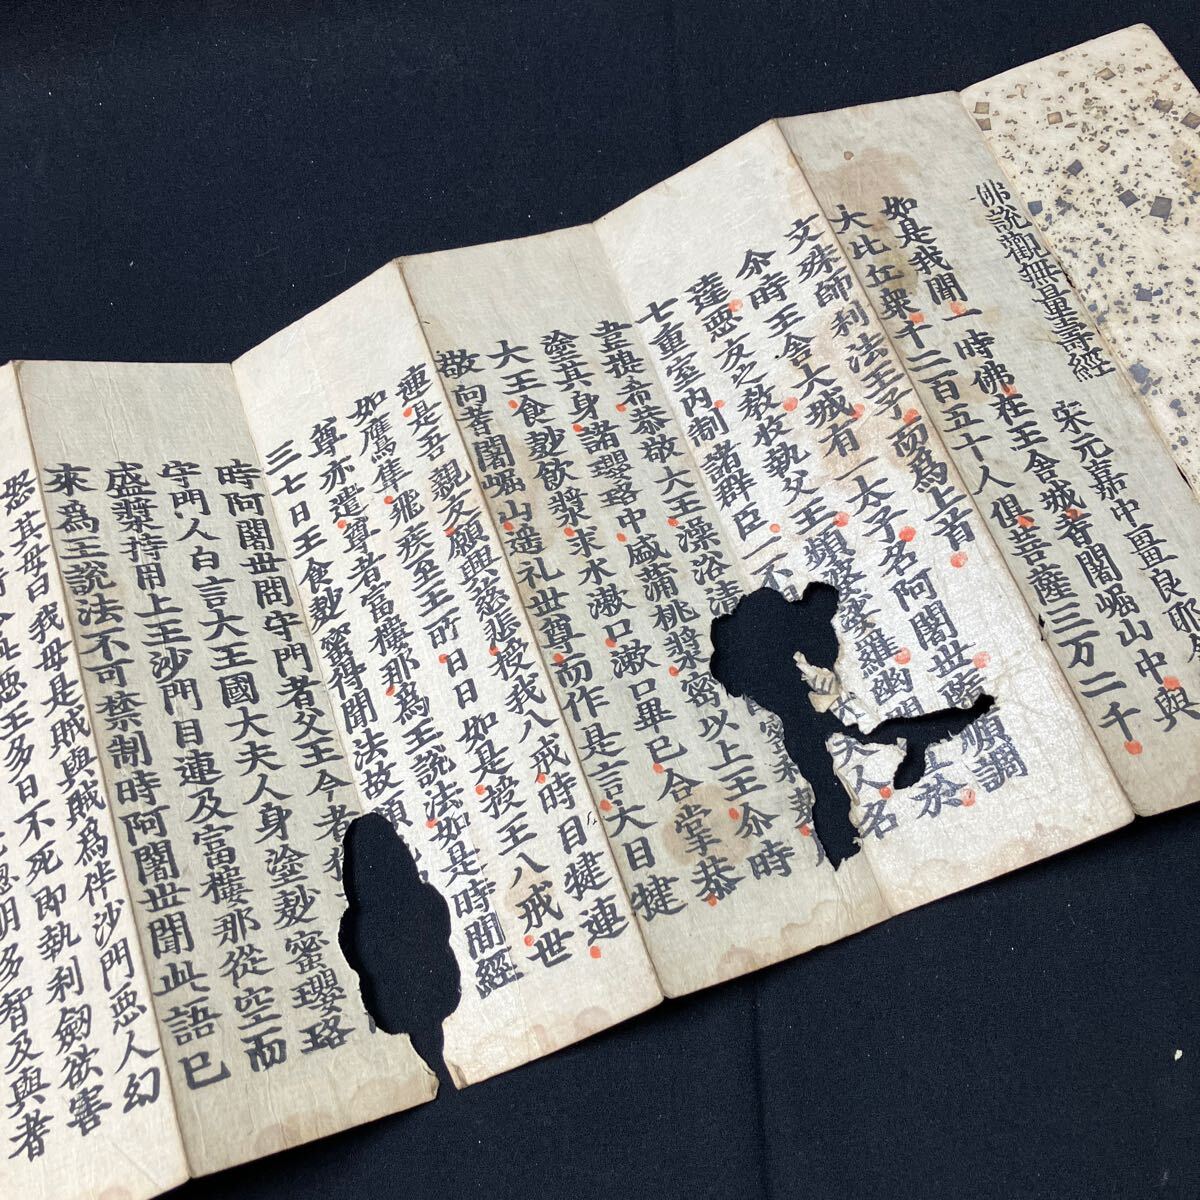 佛說觀無量壽經 宋元嘉中畺良耶舍
如是我聞一時佛在王舍城耆闍崛山中與
大比丘衆千二百五十人俱菩薩三万二千
文殊師利法王子而爲上首
尒時王舍大城有一太子名阿闍世隨順調
達惡友之教收執父王頻婆娑羅幽閇 於
七重室內制諸群臣一不 夫人名
韋提希恭敬大王澡浴清 蜜和麨
塗其身諸瓔珞中盛蒲桃漿密以上王尒時
大王食麨飲漿求水漱口漱口畢已合掌恭
敬向耆闍崛山遥礼世尊而作是言大目犍
連是吾親友願興慈悲授我八戒時目犍連
如鷹隼飛疾至王所日日如是授王八戒世
尊亦遣尊者富樓那爲王說法如是時間經
三七日王食麨蜜得聞法故顏
時阿闍世問守門者父王今者猶
守門人白言大王國大夫人身塗麨蜜瓔珞
盛漿持用上王沙門目連及富樓那從空而
來爲王說法不可禁制時阿闍世聞此語已
怒其母曰我母是賊與賊爲伴沙門惡人幻
惡王多日不死即執利劒欲害
聰明多智及與耆